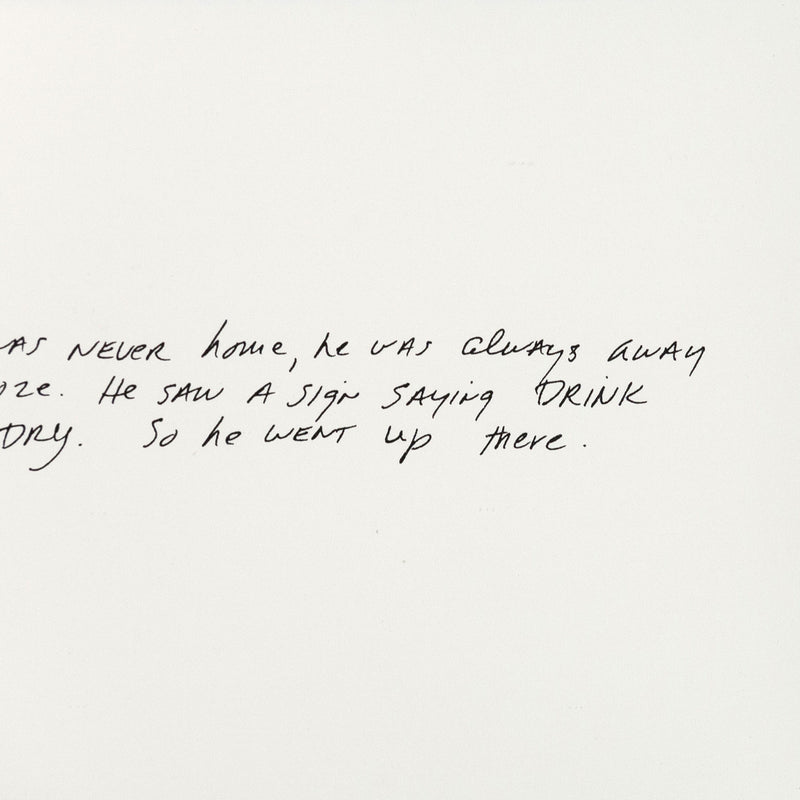 was never home, he was always away
oze. He saw a sign saying DRINK
DRY. So he went up there.